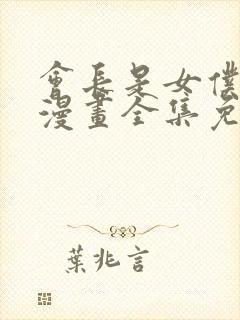 會長是女僕
漫畫全集免
葉兆言